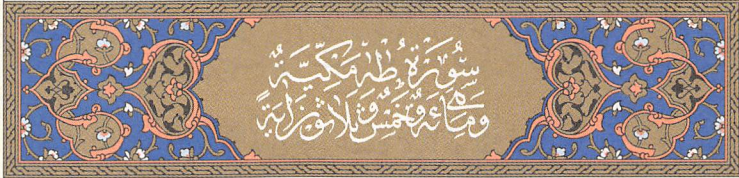 سُورَةُ طٰهٰ مَكِّيَّةٌ
وَهِيَ مِائَةٌ وَخَمْسٌ وَثَلَاثُونَ آيَةً